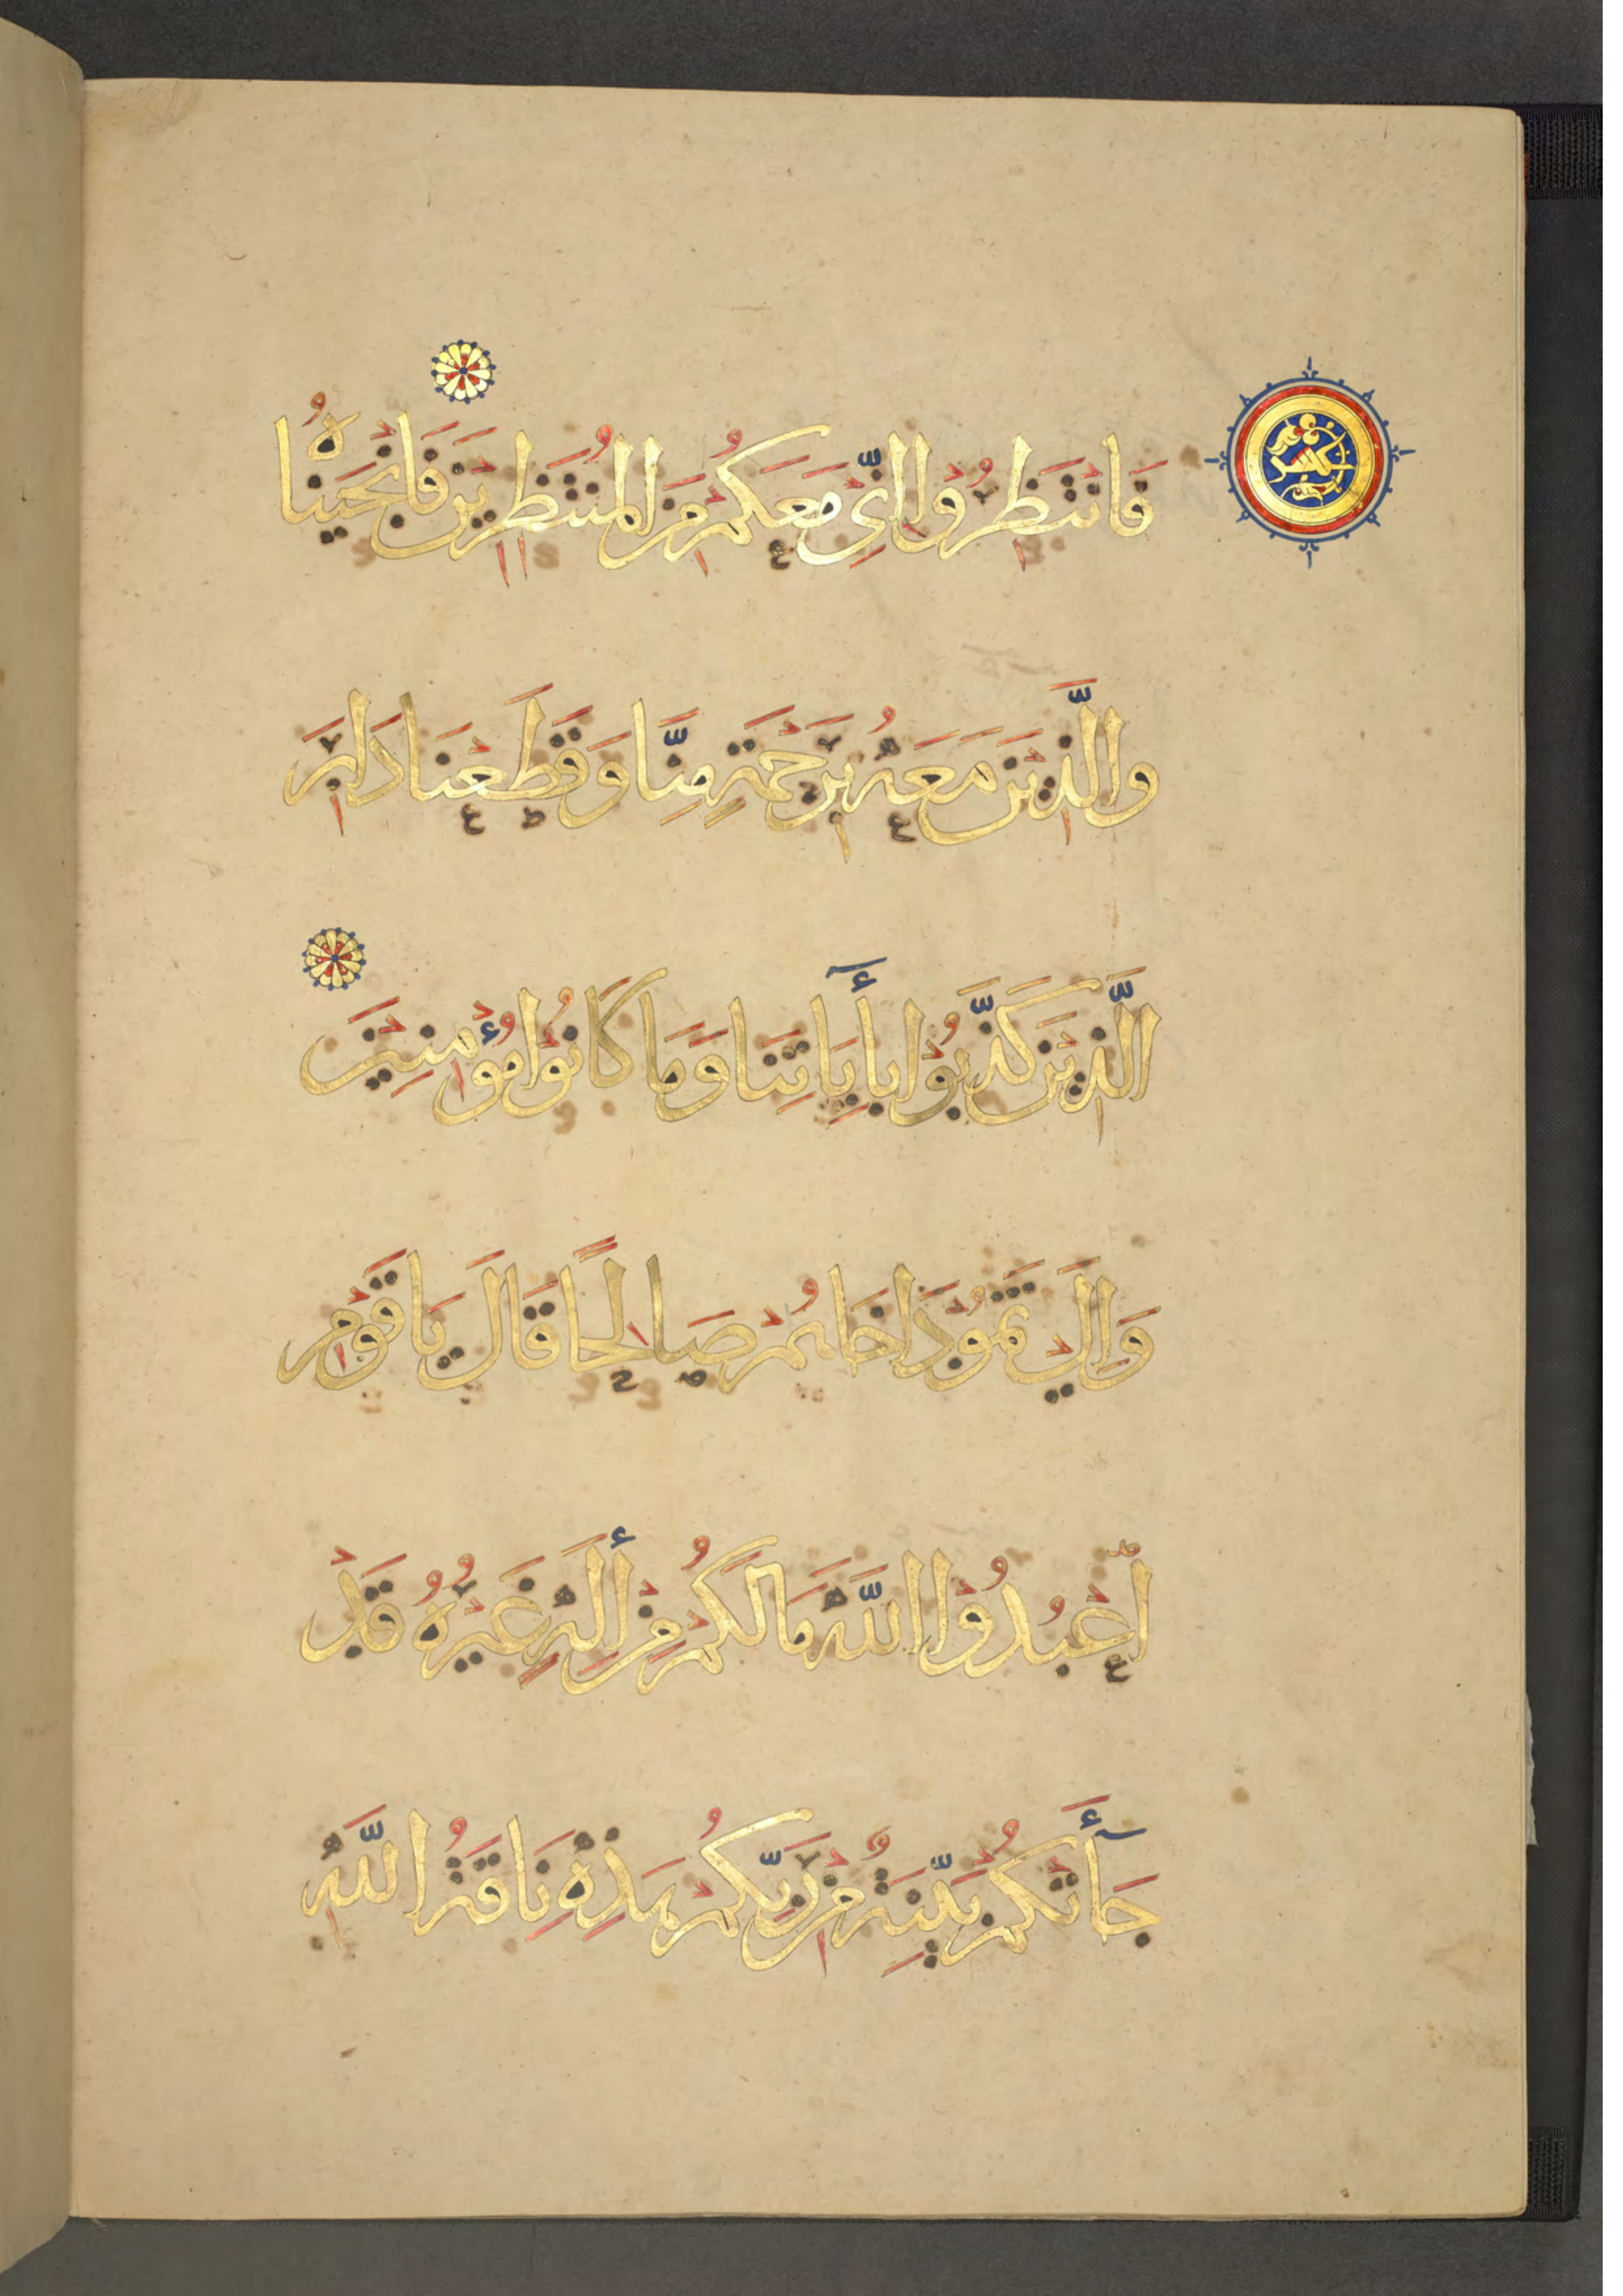 فَانْتَظِرُوْا إِنِّي مَعَكُمْ مِنَ الْمُنْتَظِرِينَ فَأَنْجَيْنَاهُ
وَالَّذِيْنَ مَعَهُ بِرَحْمَةٍ مِنَّا وَقَطَعْنَا دَابِرَ
الَّذِيْنَ كَذَّبُوْا بِأَيَاتِنَا وَمَا كَانُوْا مُؤْمِنِيْنَ
وَإِلَى ثَمُوْدَ أَخَاهُمْ صَالِحًا قَالَ يَا قَوْمِ
اعْبُدُوْا اللَّهَ مَا لَكُمْ مِنْ إِلَهٍ غَيْرُهُ قَدْ
جَأَتْكُمْ بَيِّنَةٌ مِنْ رَبِّكُمْ هَذِهِ نَاقَةُ اللَّهِ